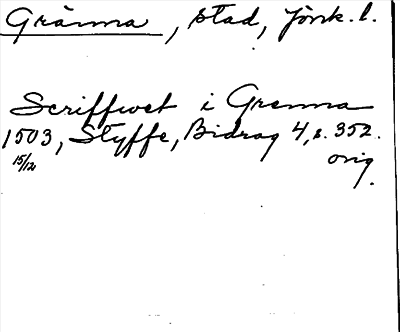 Gränna, stad, Jönk. l.
Scriffwet i Grenna
1503, Styffe, Bidrag 4, s. 352.
15/12 orig.